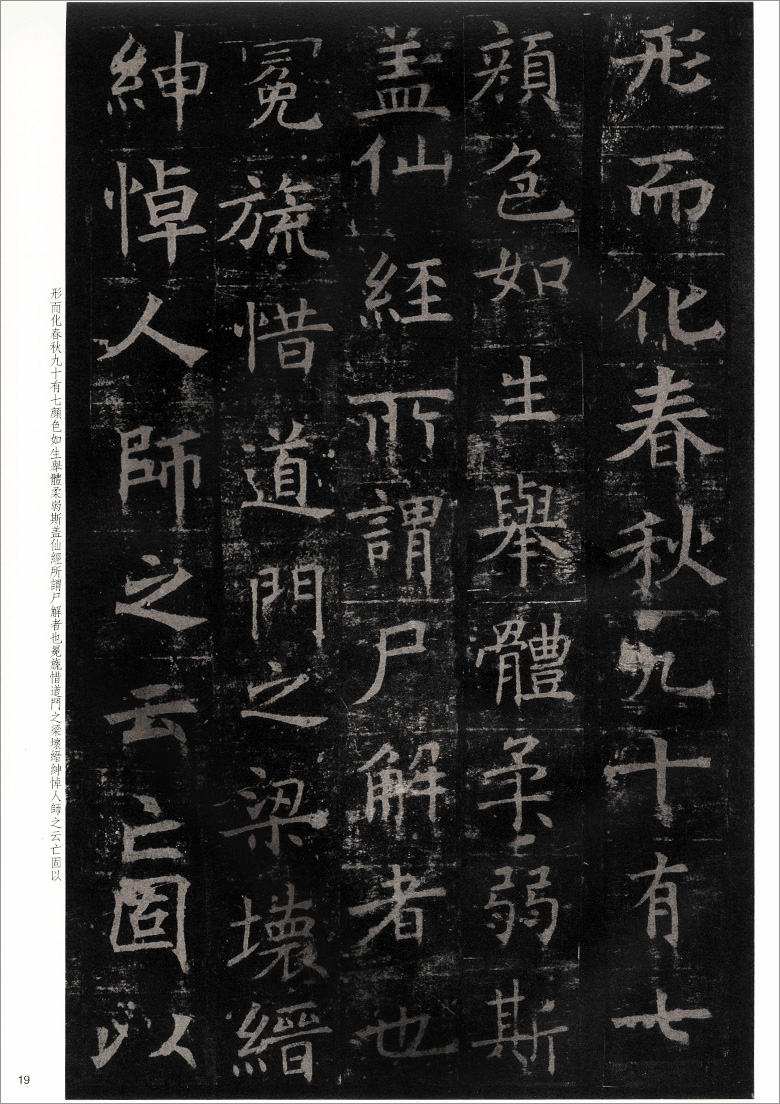 形而化春秋九十有七
顔色如生舉體柔弱斯
盖仙經所謂尸解者也
冕旒惜道門之梁壞縉
紳悼人師之云亡固以
形而化春秋九十有七顔色如生舉體柔弱斯盖仙經所謂尸解者也冕旒惜道門之梁壞縉紳悼人師之云亡固以
19